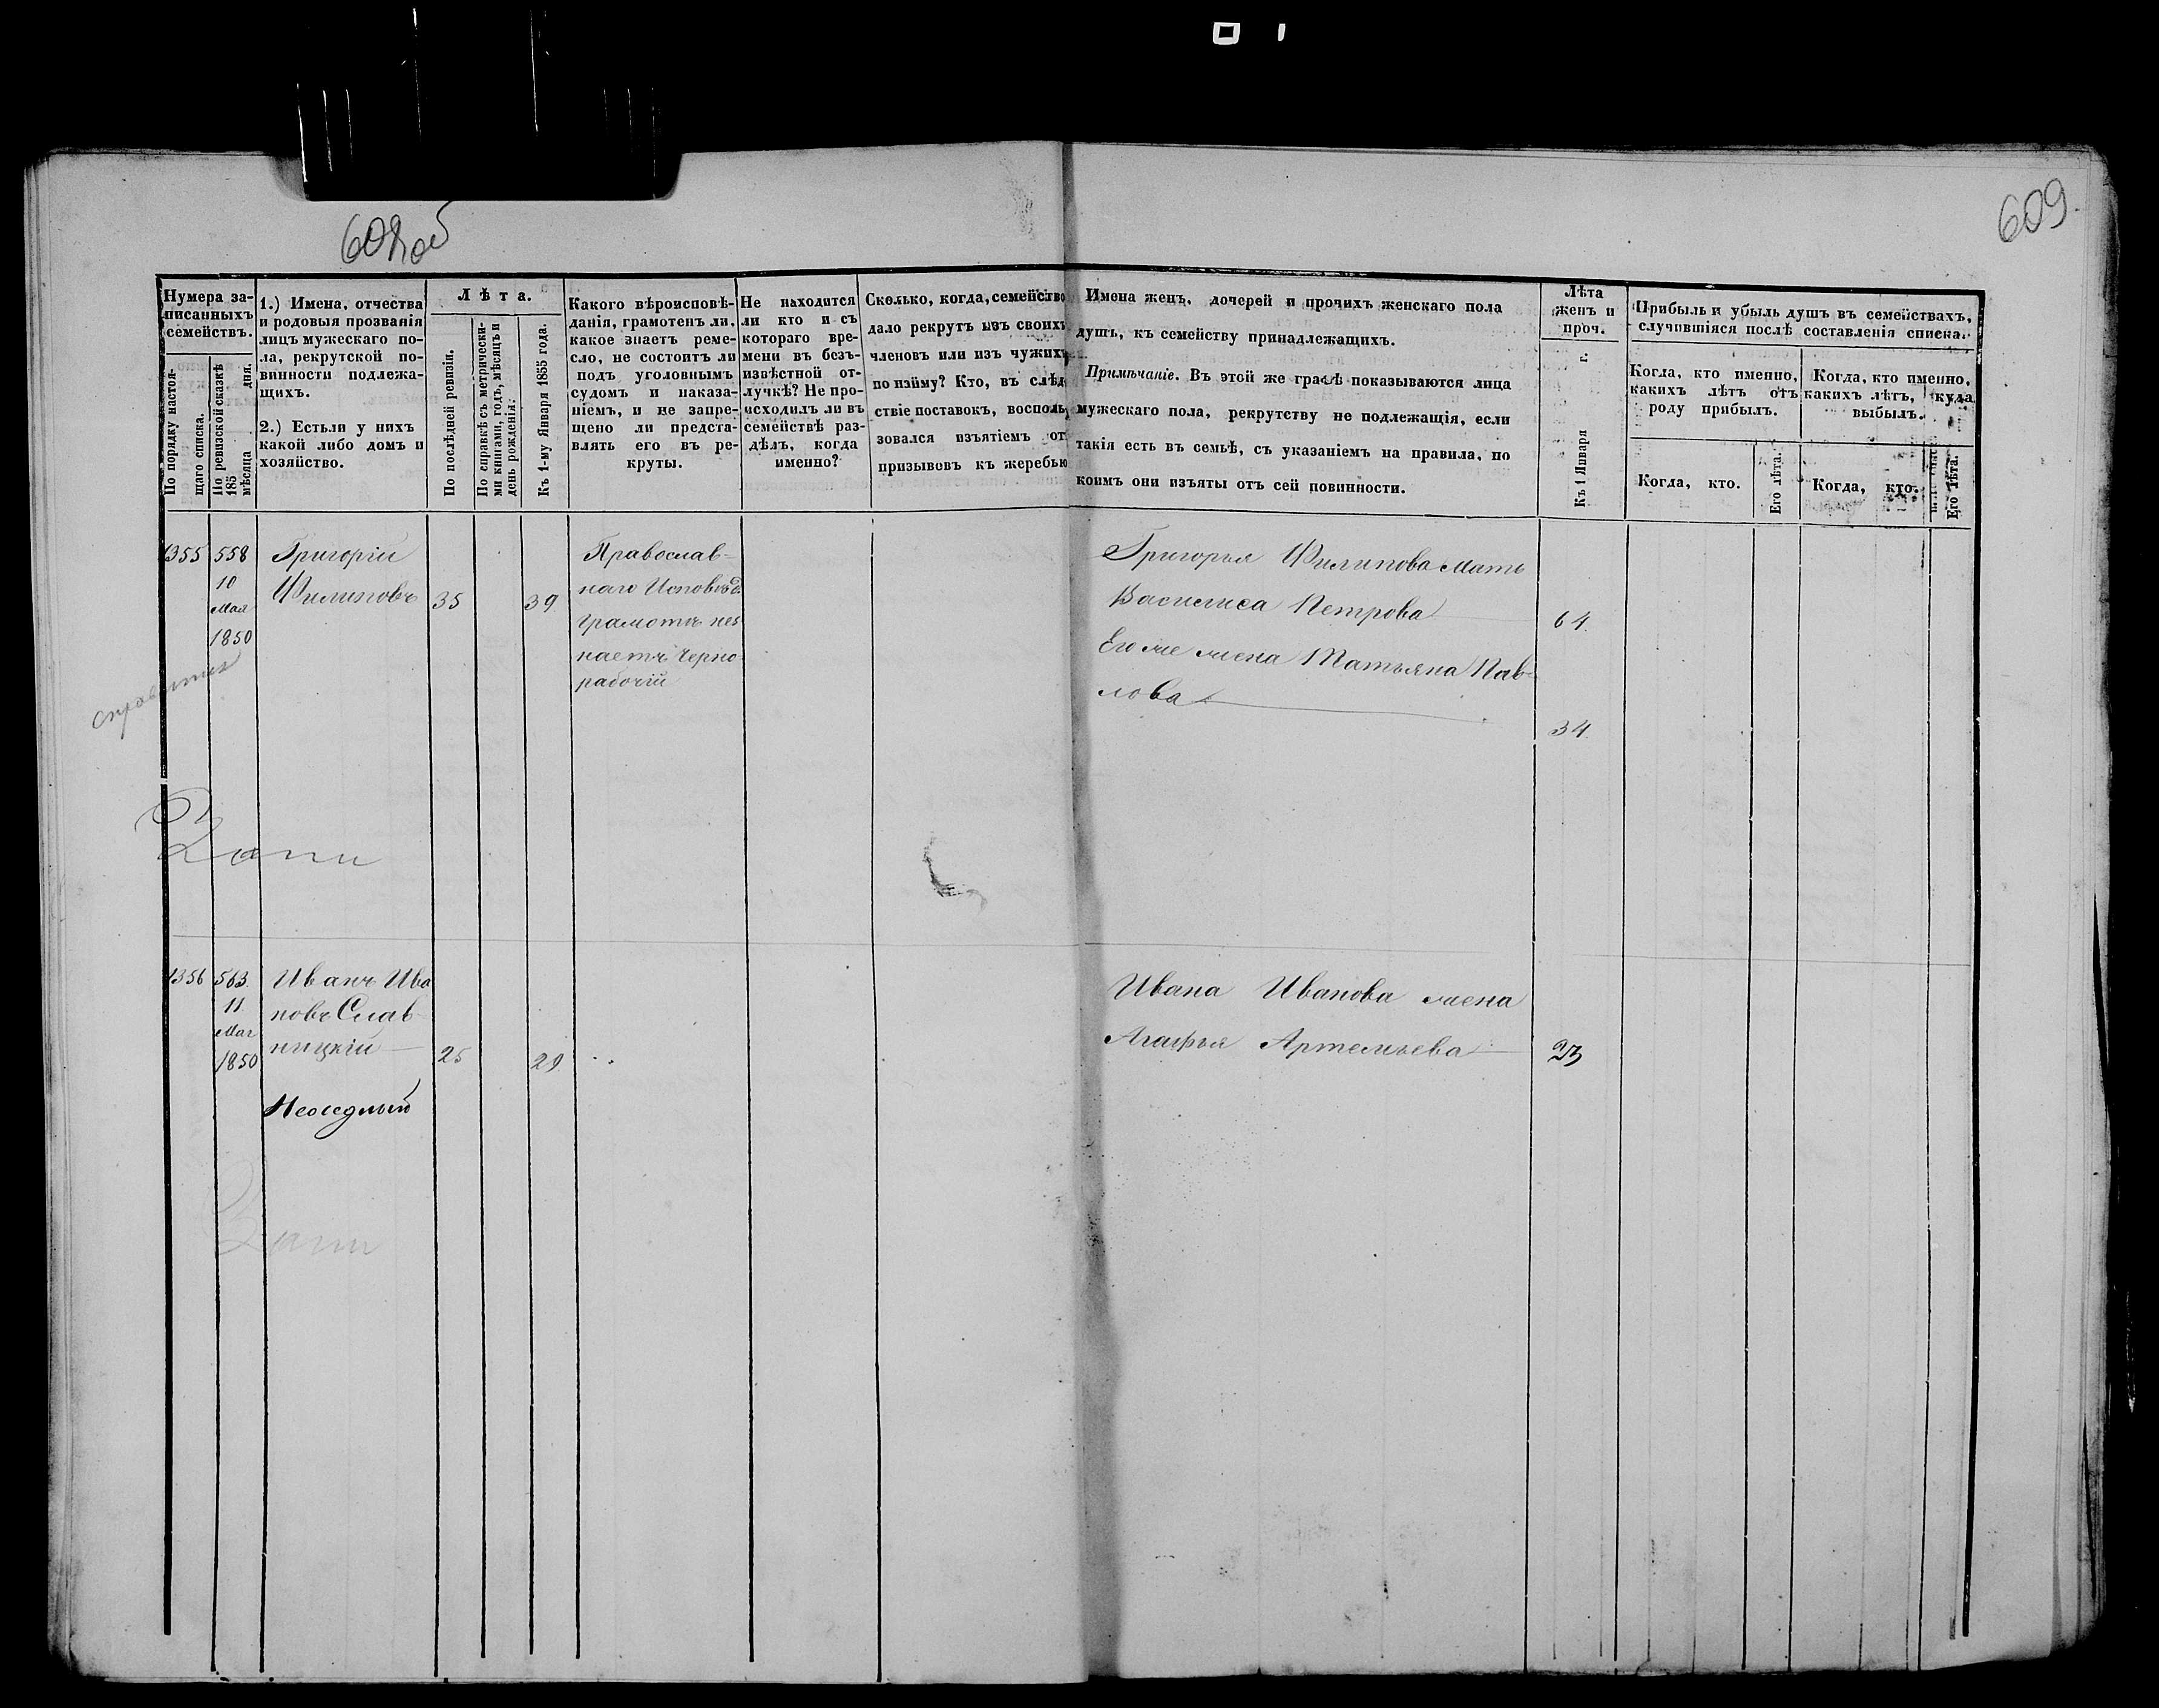 608 об
609
Нумера за-
писанныхъ
семействъ.
По порядку настоя-
щаго списка.
По ревизской сказкѣ
185 мѣсяца дня.
1.) Имена, отчества
и родовыя прозванія
лицъ мужескаго по-
ла, рекрутской по-
винности подлежа-
щихъ.
2.) Естьли у нихъ
какой либо домъ и
хозяйство.
Лѣта.
По послѣдней ревизіи.
По справкѣ съ метрически-
ми книгами, годъ, мѣсяцъ и
день рожденія.
Къ 1-му Января 1855 года.
Какого вѣроисповѣ-
данія, грамотенъ ли,
какое знаетъ реме-
сло, не состоитъ ли
подъ уголовнымъ
судомъ и наказа-
ніемъ, и не запре-
щено ли предста-
влять его въ ре-
круты.
Не находится
ли кто и съ
котораго вре-
мени въ безъ-
извѣстной от-
лучкѣ? Не про-
исходилъ ли въ
семействѣ раз-
дѣлъ, когда
именно?
Сколько, когда, семейство
дало рекрутъ изъ своихъ
членовъ или изъ чужихъ
по найму? Кто, въ слѣд
ствіе поставокъ, восполь
зовался изъятіемъ от
призывовъ къ жеребью
Имена женъ, дочерей и прочихъ женскаго пола
душъ, къ семейству принадлежащихъ.
Примѣчаніе. Въ этой же графѣ показываются лица
мужескаго пола, рекрутству не подлежащія, если
такія есть въ семьѣ, съ указаніемъ на правила, по
коимъ они изъяты отъ сей повинности.
Лѣта
женъ и
проч.
Къ 1 Января г.
Прибыль и убыль душъ въ семействахъ,
случившіяся послѣ составленія списка.
Когда, кто именно,
какихъ лѣтъ отъ
роду прибылъ.
Когда, кто именно,
какихъ лѣтъ, куда
выбылъ.
Когда, кто.
Его лѣта.
Когда, кто.
Его лѣта.
1355
558
10
Мая
1850
Григорій
Филиповъ
35
39
Православ-
наго Исповѣд.
грамотѣ нез
наетъ Черно
рабочій
Григорья Филипова мать
Василиса Петрова
64
Его же жена Татьяна Пав-
лова
34
1356
563
11
Мая
1850
Иванъ Ива
новъ Слав-
ницкій
25
29
Неоседлый
Ивана Иванова жена
Агафья Артемьева
23